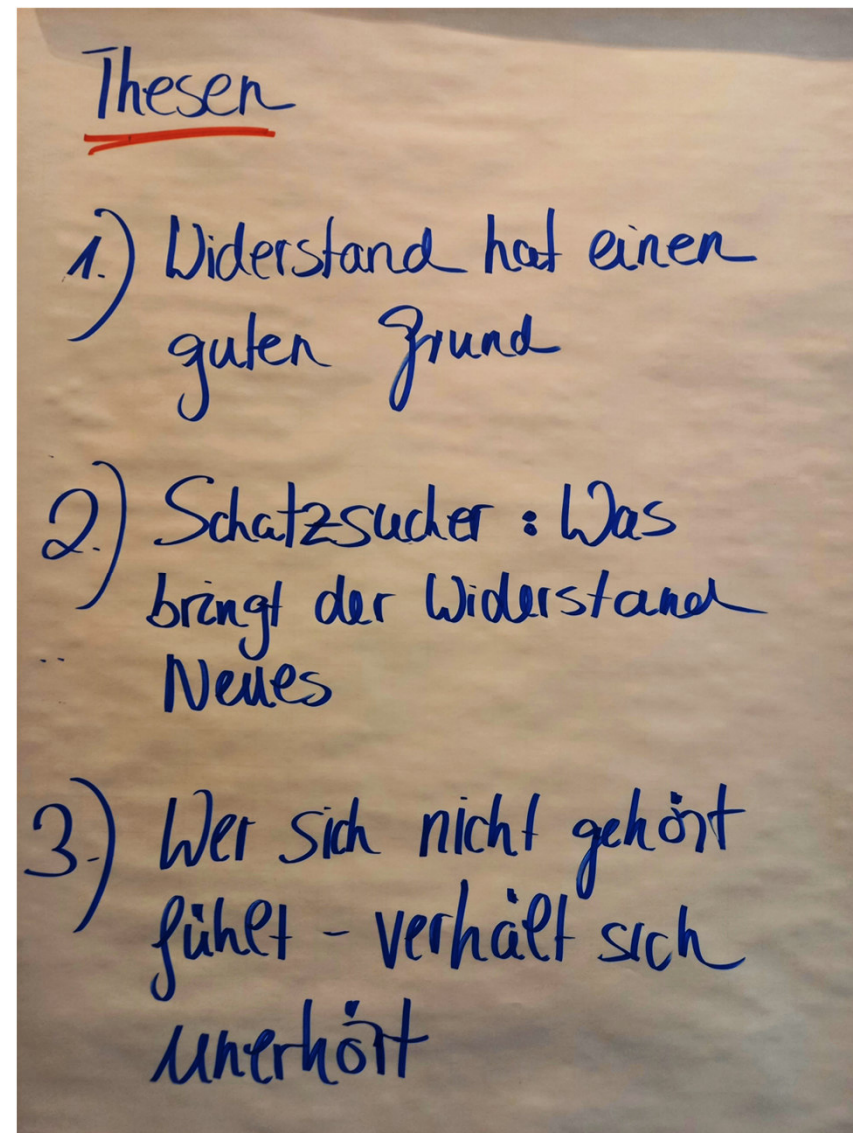 Thesen
1.) Widerstand hat einen
guten Grund
2.) Schatzsucher: Was
bringt der Widerstand
Neues
3.) Wer sich nicht gehört
fühlt - verhält sich
unerhört